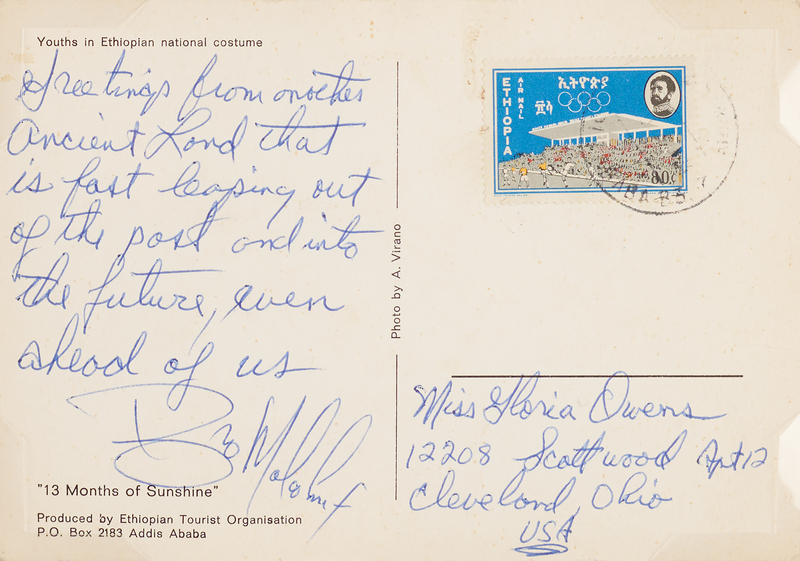 Youths in Ethiopian national costume
Greetings from another
Ancient Land that
is fast leaping out
of the past and into
the future, even
ahead of us
Bro Malcolm X
"13 Months of Sunshine"
Produced by Ethiopian Tourist Organisation
P.O. Box 2183 Addis Ababa
Photo by A. Virano
ETHIOPIA
AIR MAIL
ኢትዮጵያ
80c
Miss Gloria Owens
12208 Scottwood Apt 12
Cleveland, Ohio
USA